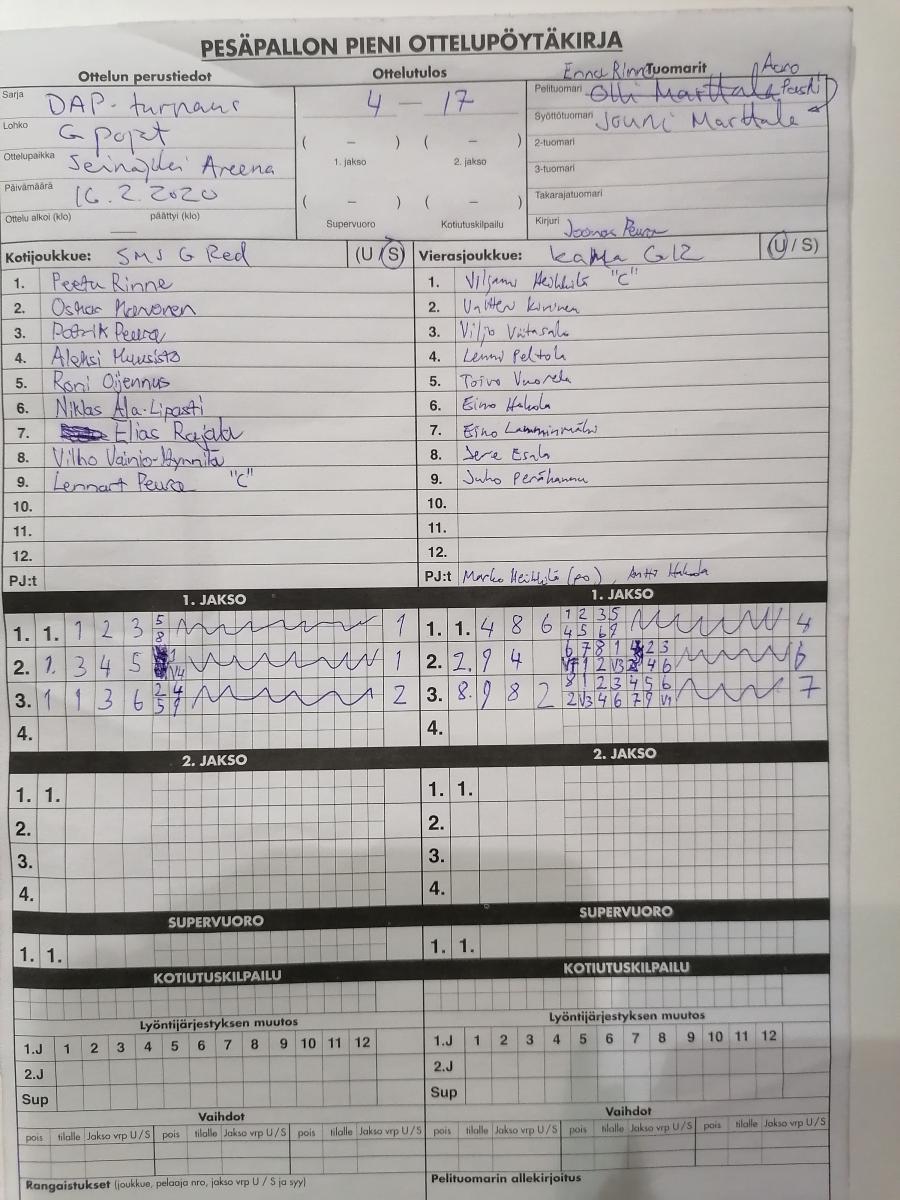 PESÄPALLON PIENI OTTELUPÖYTÄKIRJA
Ottelun perustiedot
Ottelutulos
Enna Rinne
Tuomarit
Aaro
Sarja DAP-turnaus
4 – 17
Pelituomari Olli Marttala
Lohko G pojat
Syöttötuomari Jouni Marttala
Ottelupaikka Seinäjoki Areena
( – ) ( – )
1. jakso 2. jakso
2-tuomari
3-tuomari
Päivämäärä 16.2.2020
( – ) ( – )
Takarajatuomari
Ottelu alkoi (klo) päättyi (klo)
Supervuoro Kotiutuskilpailu
Kirjuri Joonas Peura
Kotijoukkue: SMS G Red (U / S)
Vierasjoukkue: KaMa G12 (U / S)
1. Peetu Rinne
2. Oskar
3. Patrik Peura
4. Aleksi Muusisto
5. Roni Oijennus
6. Niklas Ala-Lipasti
7. Elias Rajala
8. Vilho Vainio-Hynnilä
9. Lennart Peura "C"
10.
11.
12.
PJ:t
1. Viljami Heikkilä "C"
2. Kininen
3. Viljo Viitasalo
4. Lenni Peltola
5. Toivo Vuorela
6. Eino Hakola
7. Eino Lamminmäki
8. Jere Esala
9. Juho
10.
11.
12.
PJ:t Marko Heikkilä (po), Antti Hakola
1. JAKSO
1. 1. 1 2 3 5 8 1
2. 1. 3 4 5 1 V4 1
3. 1 1 3 6 2 4 5 9 2
4.
1. JAKSO
1. 1. 4 8 6 1 2 3 5 4 5 6 9 4
2. 2. 9 4 6 7 8 1 2 3 1 2 V3 4 6 6
3. 8. 9 8 2 8 1 2 3 4 5 6 2 V3 4 6 7 9 V1 7
4.
2. JAKSO
1. 1.
2.
3.
4.
2. JAKSO
1. 1.
2.
3.
4.
SUPERVUORO
1. 1.
SUPERVUORO
1. 1.
KOTIUTUSKILPAILU
KOTIUTUSKILPAILU
Lyöntijärjestyksen muutos
1.J 1 2 3 4 5 6 7 8 9 10 11 12
2.J
Sup
Lyöntijärjestyksen muutos
1.J 1 2 3 4 5 6 7 8 9 10 11 12
2.J
Sup
Vaihdot
pois tilalle Jakso vrp U / S pois tilalle Jakso vrp U / S pois tilalle Jakso vrp U / S
Vaihdot
pois tilalle Jakso vrp U / S pois tilalle Jakso vrp U / S pois tilalle Jakso vrp U / S
Rangaistukset (joukkue, pelaaja nro, jakso vrp U / S ja syy)
Pelituomarin allekirjoitus